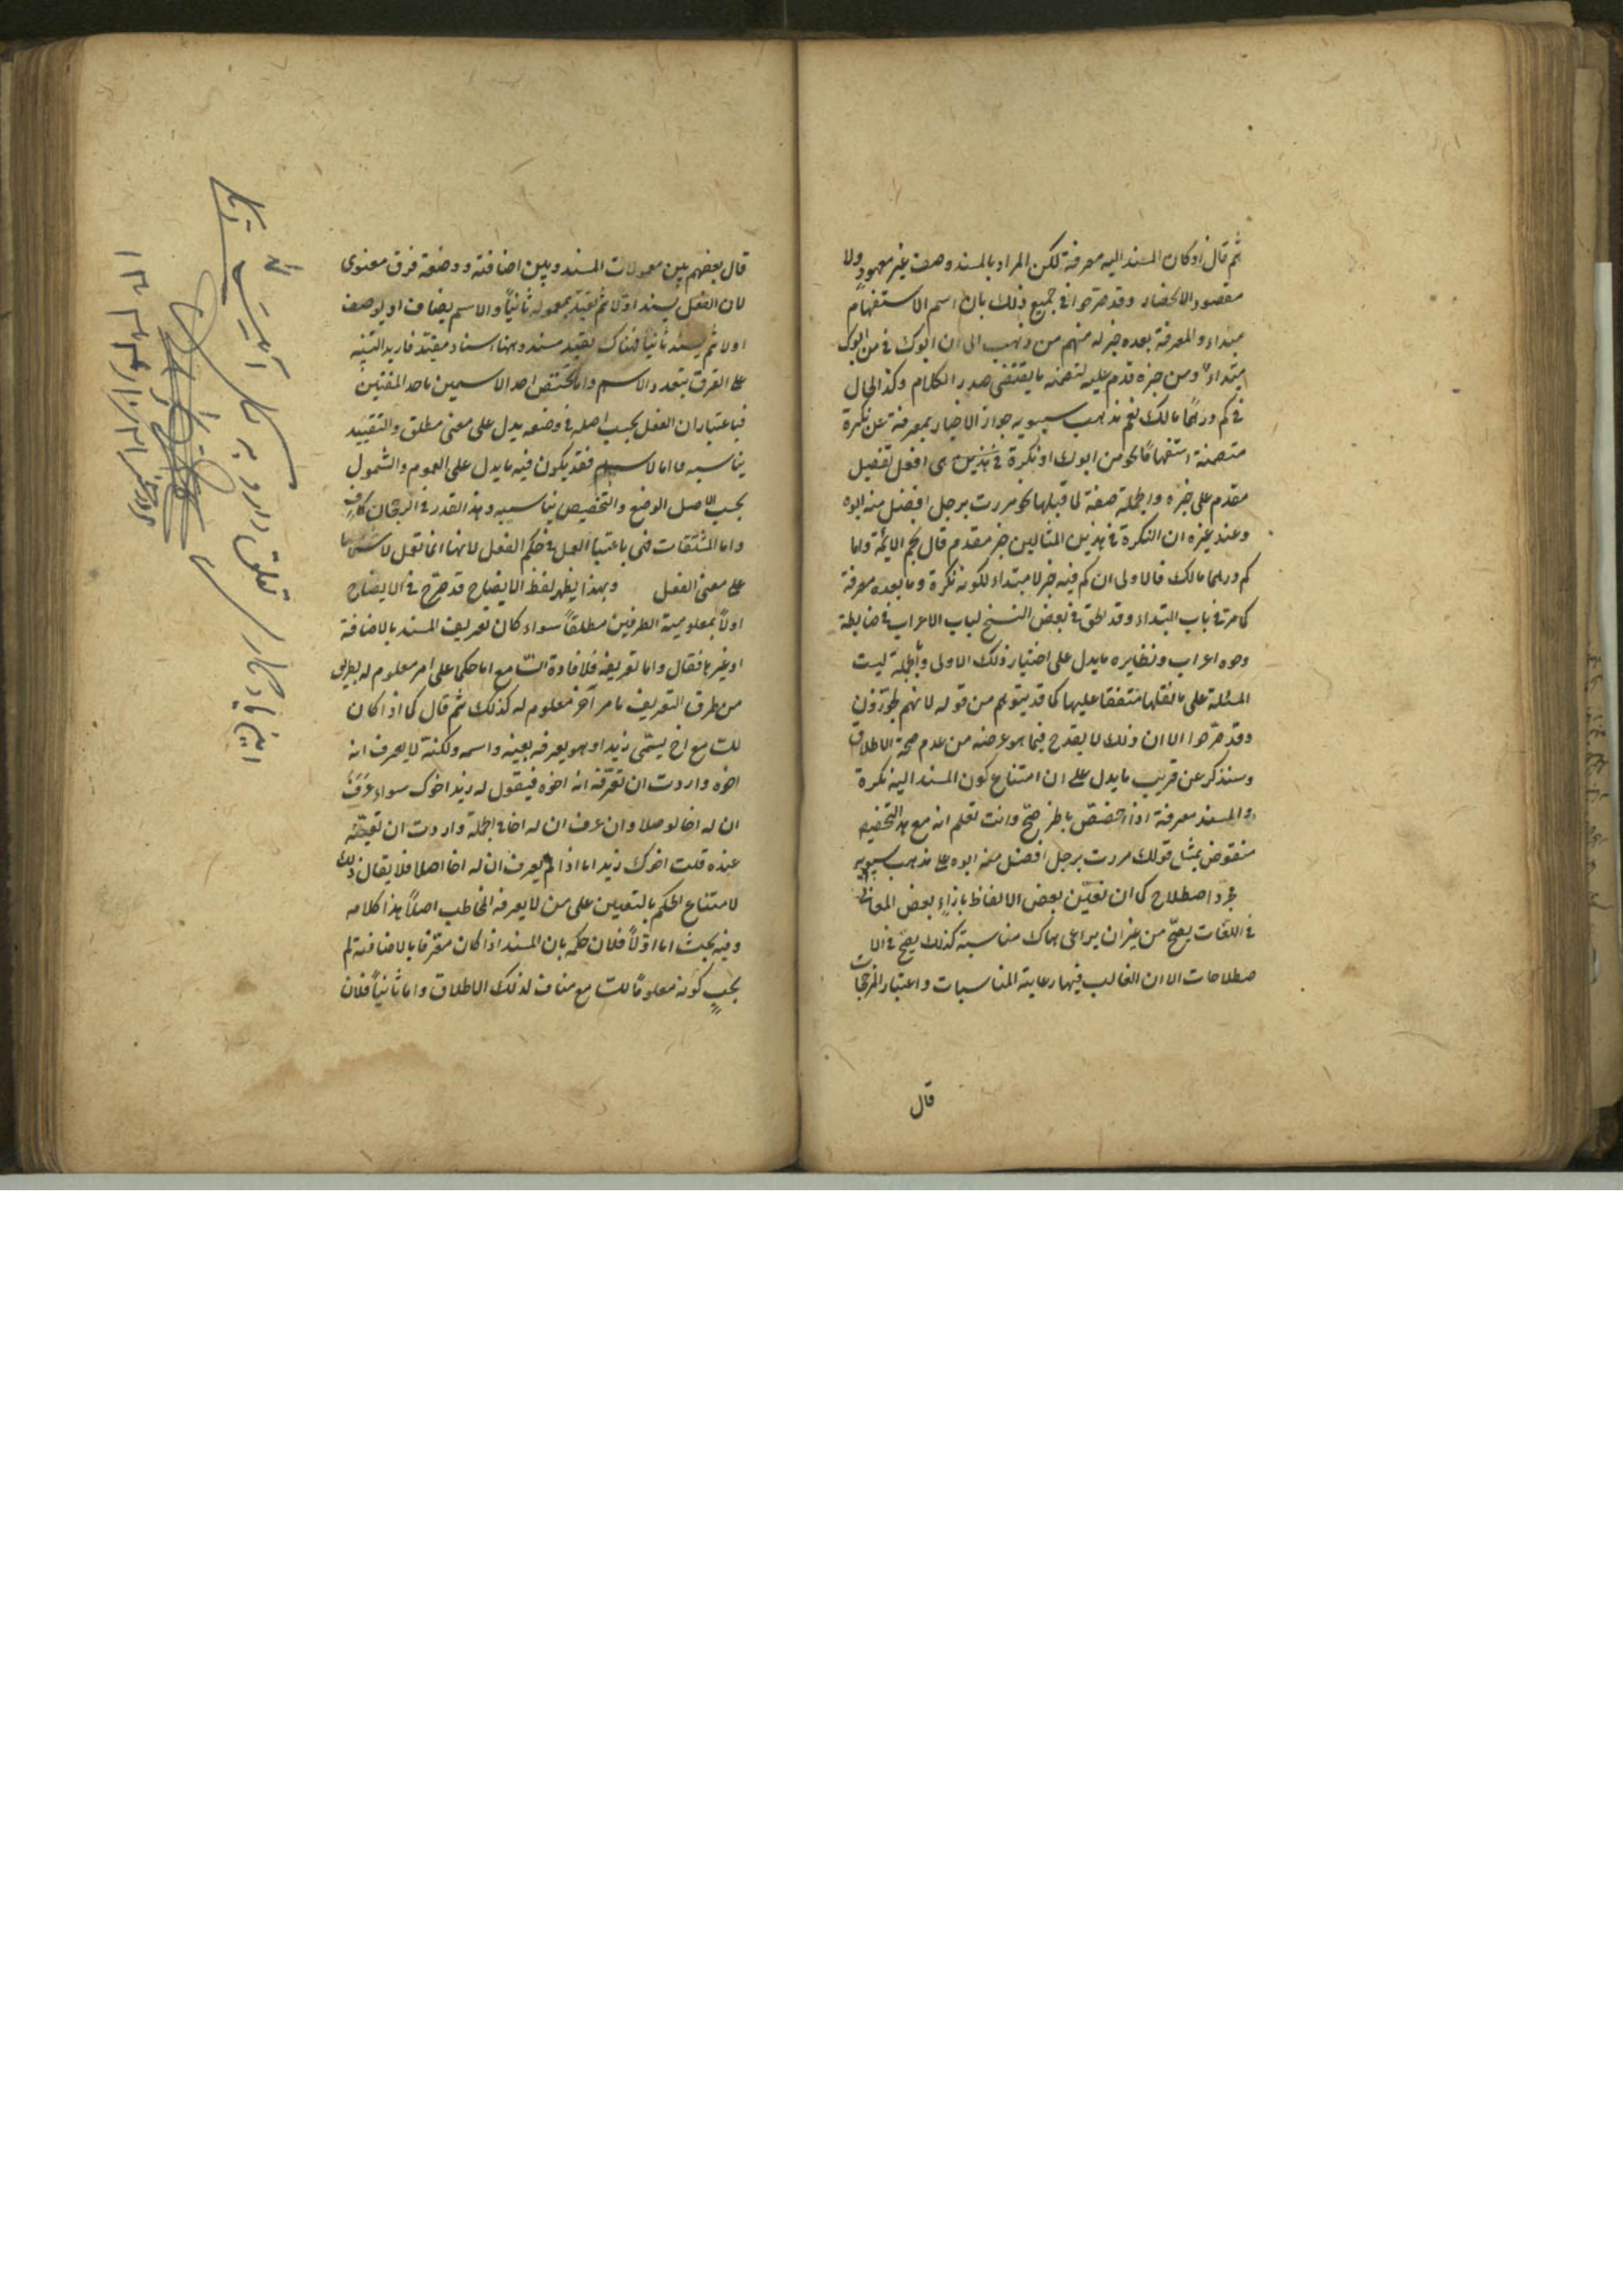 ثم قال او كان المسند اليه معرفة لكن المراد بالمسند وصف غير معهود ولا
مقصود الانحصار وقد صرحوا فى جميع ذلك بان اسم الاستفهام
مبتداء والمعرفة بعده خبر له منهم من ذهب الى ان ابوك فى من ابوك
مبتداء ومن خبره قدم عليه لتضمنه ما يقتضى صدر الكلام وكذا الحال
فى كم درهما مالك نعم مذهب سيبويه جواز الاخبار بمعرفة عن نكرة
متضمنة استفهاما نحو من ابوك او نكرة هى افعل تفضيل
مقدم على خبره والجملة صفة لما قبلها نحو مررت برجل افضل منه ابوه
وعند غيره ان النكرة فى هذين المثالين خبر مقدم قال نجم الائمة واما
كم درهما مالك فالاولى ان كم فيه خبر لا مبتداء لكونه نكرة وما بعده معرفة
كما مر فى باب المبتداء وقد لحق فى بعض النسخ لباب الاعراب فى ضابطة
وجوه اعراب ونظايره ما يدل على اختيار ذلك الاولى وبالجملة ليست
المسئلة على ما نقلها متفقا عليها كما قد يتوهم من قوله لانهم يجوزون
وقد صرحوا الا ان ذلك لا يقدح فيما هو غرضه من عدم صحة الاطلاق
وسنذكر عن قريب ما يدل على ان امتناع كون المسند اليه نكرة
والمسند معرفة اذا تخصص باطر صح وانت تعلم انه مع هذا التخصيص
منقوض بمثل قولك مررت برجل افضل منه ابوه على مذهب سيبويه
مجرد اصطلاح كما ان تعيين بعض الالفاظ بازاء بعض المعانى
فى اللغات يصح من غير ان يراعى هناك مناسبة كذلك يصح فى الا
صطلاحات الا ان الغالب فيها رعاية المناسبات واعتبار المرجحات
قال
قال بعضهم بين معمولات المسند وبين اضافته ووصفه فرق معنوى
لان الفعل يسند اولا ثم يقيد بمعموله ثانيا والاسم يضاف او يوصف
اولا ثم يسند ثانيا فهناك تقييد مسند وههنا اسناد مقيد فاريد التنبيه
على الفرق بتعدد الاسم واما تخصص احد الاسمين باحد المعنيين
فباعتبار ان الفعل بحسب اصله فى وضعه يدل على معنى مطلق والتقييد
يناسبه واما الاسم فقد يكون فيه ما يدل على العموم والشمول
بحسب الاصل الوضع والتخصيص يناسبه وهذا القدر فى الرجحان كاف
واما المشتقات فهى باعتبار العمل فى حكم الفعل لانها انما تعمل لاشتمالها
على معنى الفعل وبهذا يظهر لفظ الايضاح قد صرح فى الايضاح
اولا بمعلومية الطرفين مطلقا سواء كان تعريف المسند بالاضافة
او غيرها فقال واما تعريفه فلافادة السامع اما حكما على امر معلوم له بطريق
من طرق التعريف بامر آخر معلوم له كذلك ثم قال كما اذا كان
للسامع اخ يسمى زيدا وهو يعرفه بعينه واسمه ولكنه لا يعرف انه
اخوه واردت ان تعرفه انه اخوه فيقول له زيد اخوك سواء عرف
ان له اخا او لا وان عرف ان له اخا فى الجملة واردت ان تعينه
عنده قلت اخوك زيد اما اذا لم يعرف ان له اخا اصلا فلا يقال ذلك
لامتناع الحكم بالتعيين على من لا يعرفه المخاطب اصلا هذا كلامه
وفيه بحث اما اولا فلان حكمه بان المسند اذا كان معرفا بالاضافة لم
يجب كونه معلوما للسامع مناف لذلك الاطلاق واما ثانيا فلان